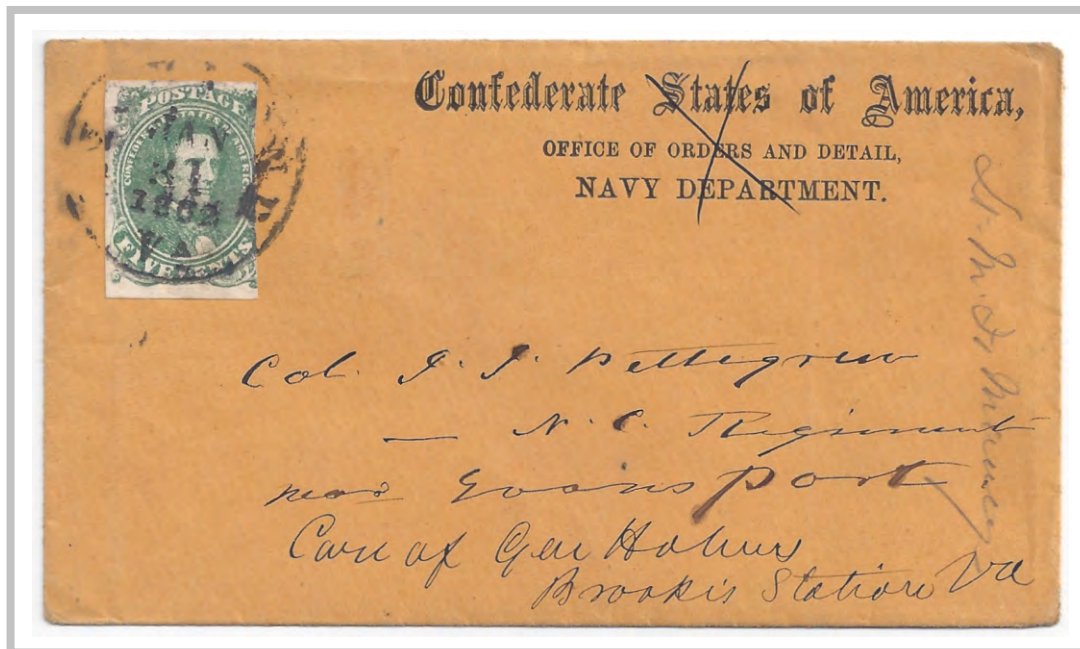 POSTAGE
CONFEDERATE STATES AMERICA
FIVE CENTS
JAN
31
1862
VA
Confederate States of America,
OFFICE OF ORDERS AND DETAIL,
NAVY DEPARTMENT.
Col. J. J. Pettigrew
— N. C. Regiment
near Evansport
Care of Gen Holmes
Brook's Station Va